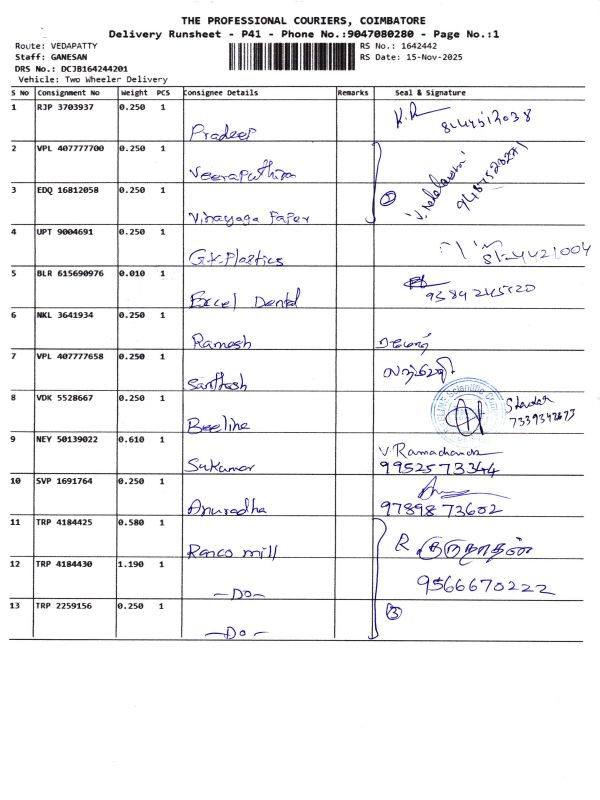 THE PROFESSIONAL COURIERS, COIMBATORE
Delivery Runsheet - P41 - Phone No.:9047080280 - Page No.:1
Route: VEDAPATTY RS No.: 1642442
Staff: GANESAN RS Date: 15-Nov-2025
DRS No.: DCJB164244201
Vehicle: Two Wheeler Delivery
S No Consignment No Weight PCS Consignee Details Remarks Seal & Signature
1 RJP 3703937 0.250 1
Pradeep
2 VPL 407777700 0.250 1
Veerapathiran
3 EDQ 16812058 0.250 1
Vinayaga Paper
4 UPT 9004691 0.250 1
G.K. Plastics
5 BLR 615690976 0.010 1
Excel Dental 9384245520
6 NKL 3641934 0.250 1
Ramesh ரமேஷ்
7 VPL 407777658 0.250 1
Santhosh
8 VDK 5528667 0.250 1
Beeline
9 NEY 50139022 0.610 1 V. Ramachandr
Sukumar 9952573344
10 SVP 1691764 0.250 1
Anuradha 9789873602
11 TRP 4184425 0.580 1
Ranco mill R. குருநாதன்
12 TRP 4184430 1.190 1 9566670222
—Do—
13 TRP 2259156 0.250 1 3
—Do—